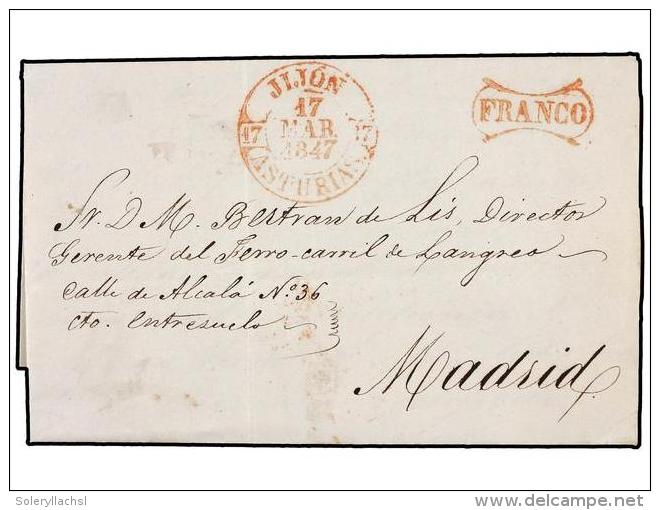 JIJÓN
17
MAR.
1847
17
17
ASTURIAS
FRANCO
Sr. D M. Bertran de Lis, Director
Gerente del Ferro-carril de Langreo
Calle de Alcalá Nº 36
cto. entresuelo
Madrid.
Soleryllachsl
delcampe.net